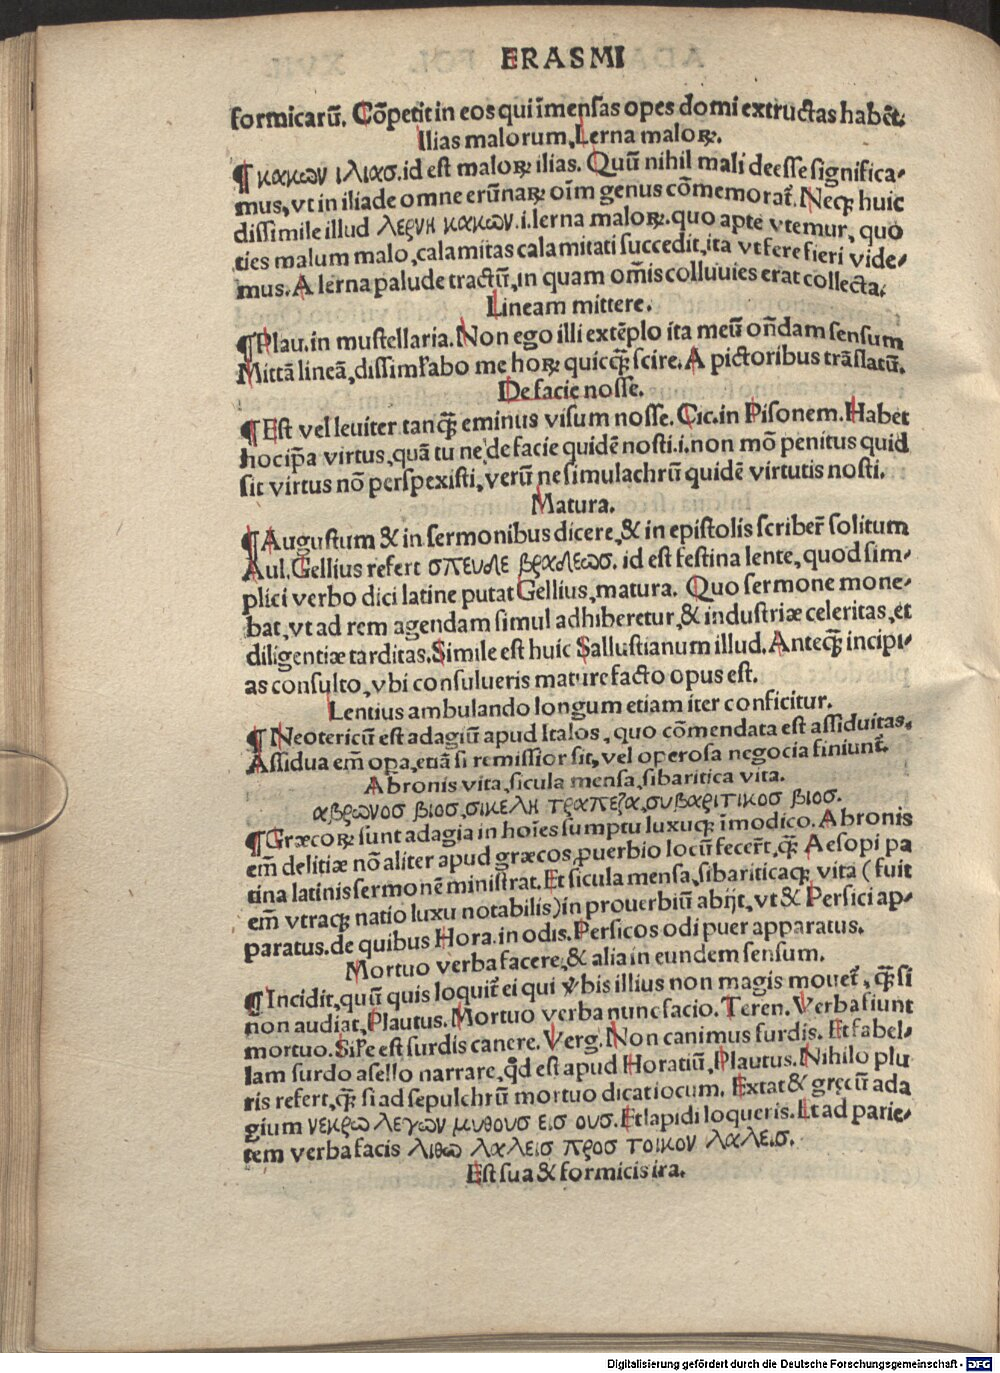 ERASMI
formicarũ. Cõpetit in eos qui ĩmensas opes domi extructas habẽt.
Ilias malorum, Lerna maloꝝ.
¶ κακων ιλιασ. id est maloꝝ ilias. Quũ nihil mali deesse significa⸗
mus, vt in iliade omne erũnaꝝ oĩm genus cõmemorat᷑. Neqꝫ huic
dissimile illud λερνη κακων. i. lerna maloꝝ. quo apte vtemur, quo
ties malum malo, calamitas calamitati succedit, ita vt fere fieri vide⸗
mus. A lerna palude tractũ, in quam om̃is colluuies erat collecta.
Lineam mittere.
¶ Plau. in mustellaria. Non ego illi extẽplo ita meũ oñdam sensum
Mittã lineã, dissimĺabo me hoꝝ quicqꝫ̃ scire. A pictoribus trãslatũ.
De facie nosse.
¶ Est vel leuiter tanqꝫ̃ eminus visum nosse. Cic. in Pisonem. Habet
hoc ip̃a virtus, quã tu ne de facie quidẽ nosti. i. non mõ penitus quid
sit virtus nõ perspexisti, verũ ne simulachrũ quidẽ virtutis nosti.
Matura.
¶ Augustum & in sermonibus dicere, & in epistolis scriber̃ solitum
Aul. Gellius refert σπευδε βραδεωσ. id est festina lente, quod sim⸗
plici verbo dici latine putat Gellius, matura. Quo sermone mone⸗
bat, vt ad rem agendam simul adhiberetur, & industriæ celeritas, et
diligentiæ tarditas. Simile est huic Sallustianum illud. Anteqꝫ̃ incipi⸗
as consulto, vbi consulueris mature facto opus est.
Lentius ambulando longum etiam iter conficitur.
¶ Neotericũ est adagiũ apud Italos, quo cõmendata est assiduitas.
Assidua em̃ opa, etiã si remissior sit, vel operosa negocia finiunt᷑.
Abronis vita, sicula mensa, sibaritica vita.
αβρωνοσ βιοσ, σικελη τραπεζα, συβαριτικοσ βιοσ.
¶ Græcoꝝ sunt adagia in hoĩes sumptu luxuqꝫ ĩmodico. Abronis
em̃ delitiæ nõ aliter apud græcos, ꝓuerbio locũ fecer̃t, qꝫ̃ Aesopi pa
tina latinis sermonẽ ministrat. Et sicula mensa, sibariticaqꝫ vita (fuit
em̃ vtraqꝫ natio luxu notabilis) in prouerbiũ abijt, vt & Persici ap⸗
paratus. de quibus Hora. in odis. Persicos odi puer apparatus.
Mortuo verba facere, & alia in eundem sensum.
¶ Incidit, quũ quis loquit᷑ ei qui v̾bis illius non magis mouet᷑, qꝫ̃ si
non audiat, Plautus. Mortuo verba nunc facio. Teren. Verba fiunt
mortuo. Sil̃e est surdis canere. Verg. Non canimus surdis. Et fabel⸗
lam surdo asello narrare, qď est apud Horatiũ, Plautus. Nihilo plu
ris refert, qꝫ̃ si ad sepulchrũ mortuo dicat iocum. Extat & gręcũ ada
gium νεκρω λεγων μυθουσ εισ ουσ. Et lapidi loqueris. Et ad parie⸗
tem verba facis λιθω λαλεισ προσ τοικον λαλεισ.
Est sua & formicis ira.
Digitalisierung gefördert durch die Deutsche Forschungsgemeinschaft - DFG